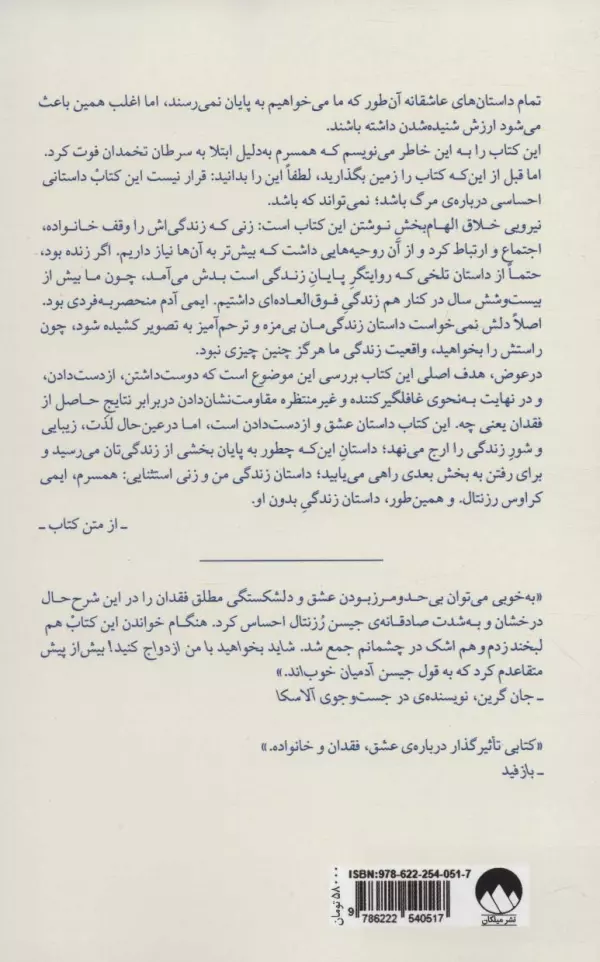 تمام داستان‌های عاشقانه آن‌طور که ما می‌خواهیم به پایان نمی‌رسند، اما اغلب همین باعث
می‌شود ارزش شنیده‌شدن داشته باشند.
این کتاب را به این خاطر می‌نویسم که همسرم به‌دلیل ابتلا به سرطان تخمدان فوت کرد.
اما قبل از این‌که کتاب را زمین بگذارید، لطفاً این را بدانید: قرار نیست این کتابْ داستانی
احساسی درباره‌ی مرگ باشد؛ نمی‌تواند که باشد.
نیرویی خلاق الهام‌بخشِ نوشتن این کتاب است: زنی که زندگی‌اش را وقف خانواده،
اجتماع و ارتباط کرد و از آن روحیه‌هایی داشت که بیش‌تر به آن‌ها نیاز داریم. اگر زنده بود،
حتماً از داستان تلخی که روایتگرِ پایانِ زندگی است بدش می‌آمد، چون ما بیش از
بیست‌وشش سال در کنار هم زندگیِ فوق‌العاده‌ای داشتیم. ایمی آدم منحصربه‌فردی بود.
اصلاً دلش نمی‌خواست داستان زندگی‌مان بی‌مزه و ترحم‌آمیز به تصویر کشیده شود، چون
راستش را بخواهید، واقعیت زندگی ما هرگز چنین چیزی نبود.
درعوض، هدف اصلی این کتاب بررسی این موضوع است که دوست‌داشتن، ازدست‌دادن،
و در نهایت به‌نحوی غافلگیرکننده و غیرمنتظره مقاومت‌نشان‌دادن دربرابر نتایجِ حاصل از
فقدان یعنی چه. این کتاب داستان عشق و ازدست‌دادن است، اما درعین‌حال لذت، زیبایی
و شورِ زندگی را ارج می‌نهد؛ داستانِ این‌که چطور به پایان بخشی از زندگی‌تان می‌رسید و
برای رفتن به بخش بعدی راهی می‌یابید؛ داستان زندگی من و زنی استثنایی: همسرم، ایمی
کراوس رزنتال. و همین‌طور، داستان زندگیِ بدون او.
ـ از متن کتاب ـ
«به‌خوبی می‌توان بی‌حدومرزبودن عشق و دلشکستگی مطلق فقدان را در این شرح‌حال
درخشان و به‌شدت صادقانه‌ی جیسن رُزنتال احساس کرد. هنگام خواندن این کتابْ هم
لبخند زدم و هم اشک در چشمانم جمع شد. شاید بخواهید با من ازدواج کنید! بیش‌از‌پیش
متقاعدم کرد که به قول جیسن آدمیان خوب‌اند.»
ـ جان گرین، نویسنده‌ی در جست‌وجوی آلاسکا
«کتابی تأثیرگذار درباره‌ی عشق، فقدان و خانواده.»
ـ بازفید
ISBN:978-622-254-051-7
9 786222 540517
۵۸۰۰۰ تومان
نشر میلکان